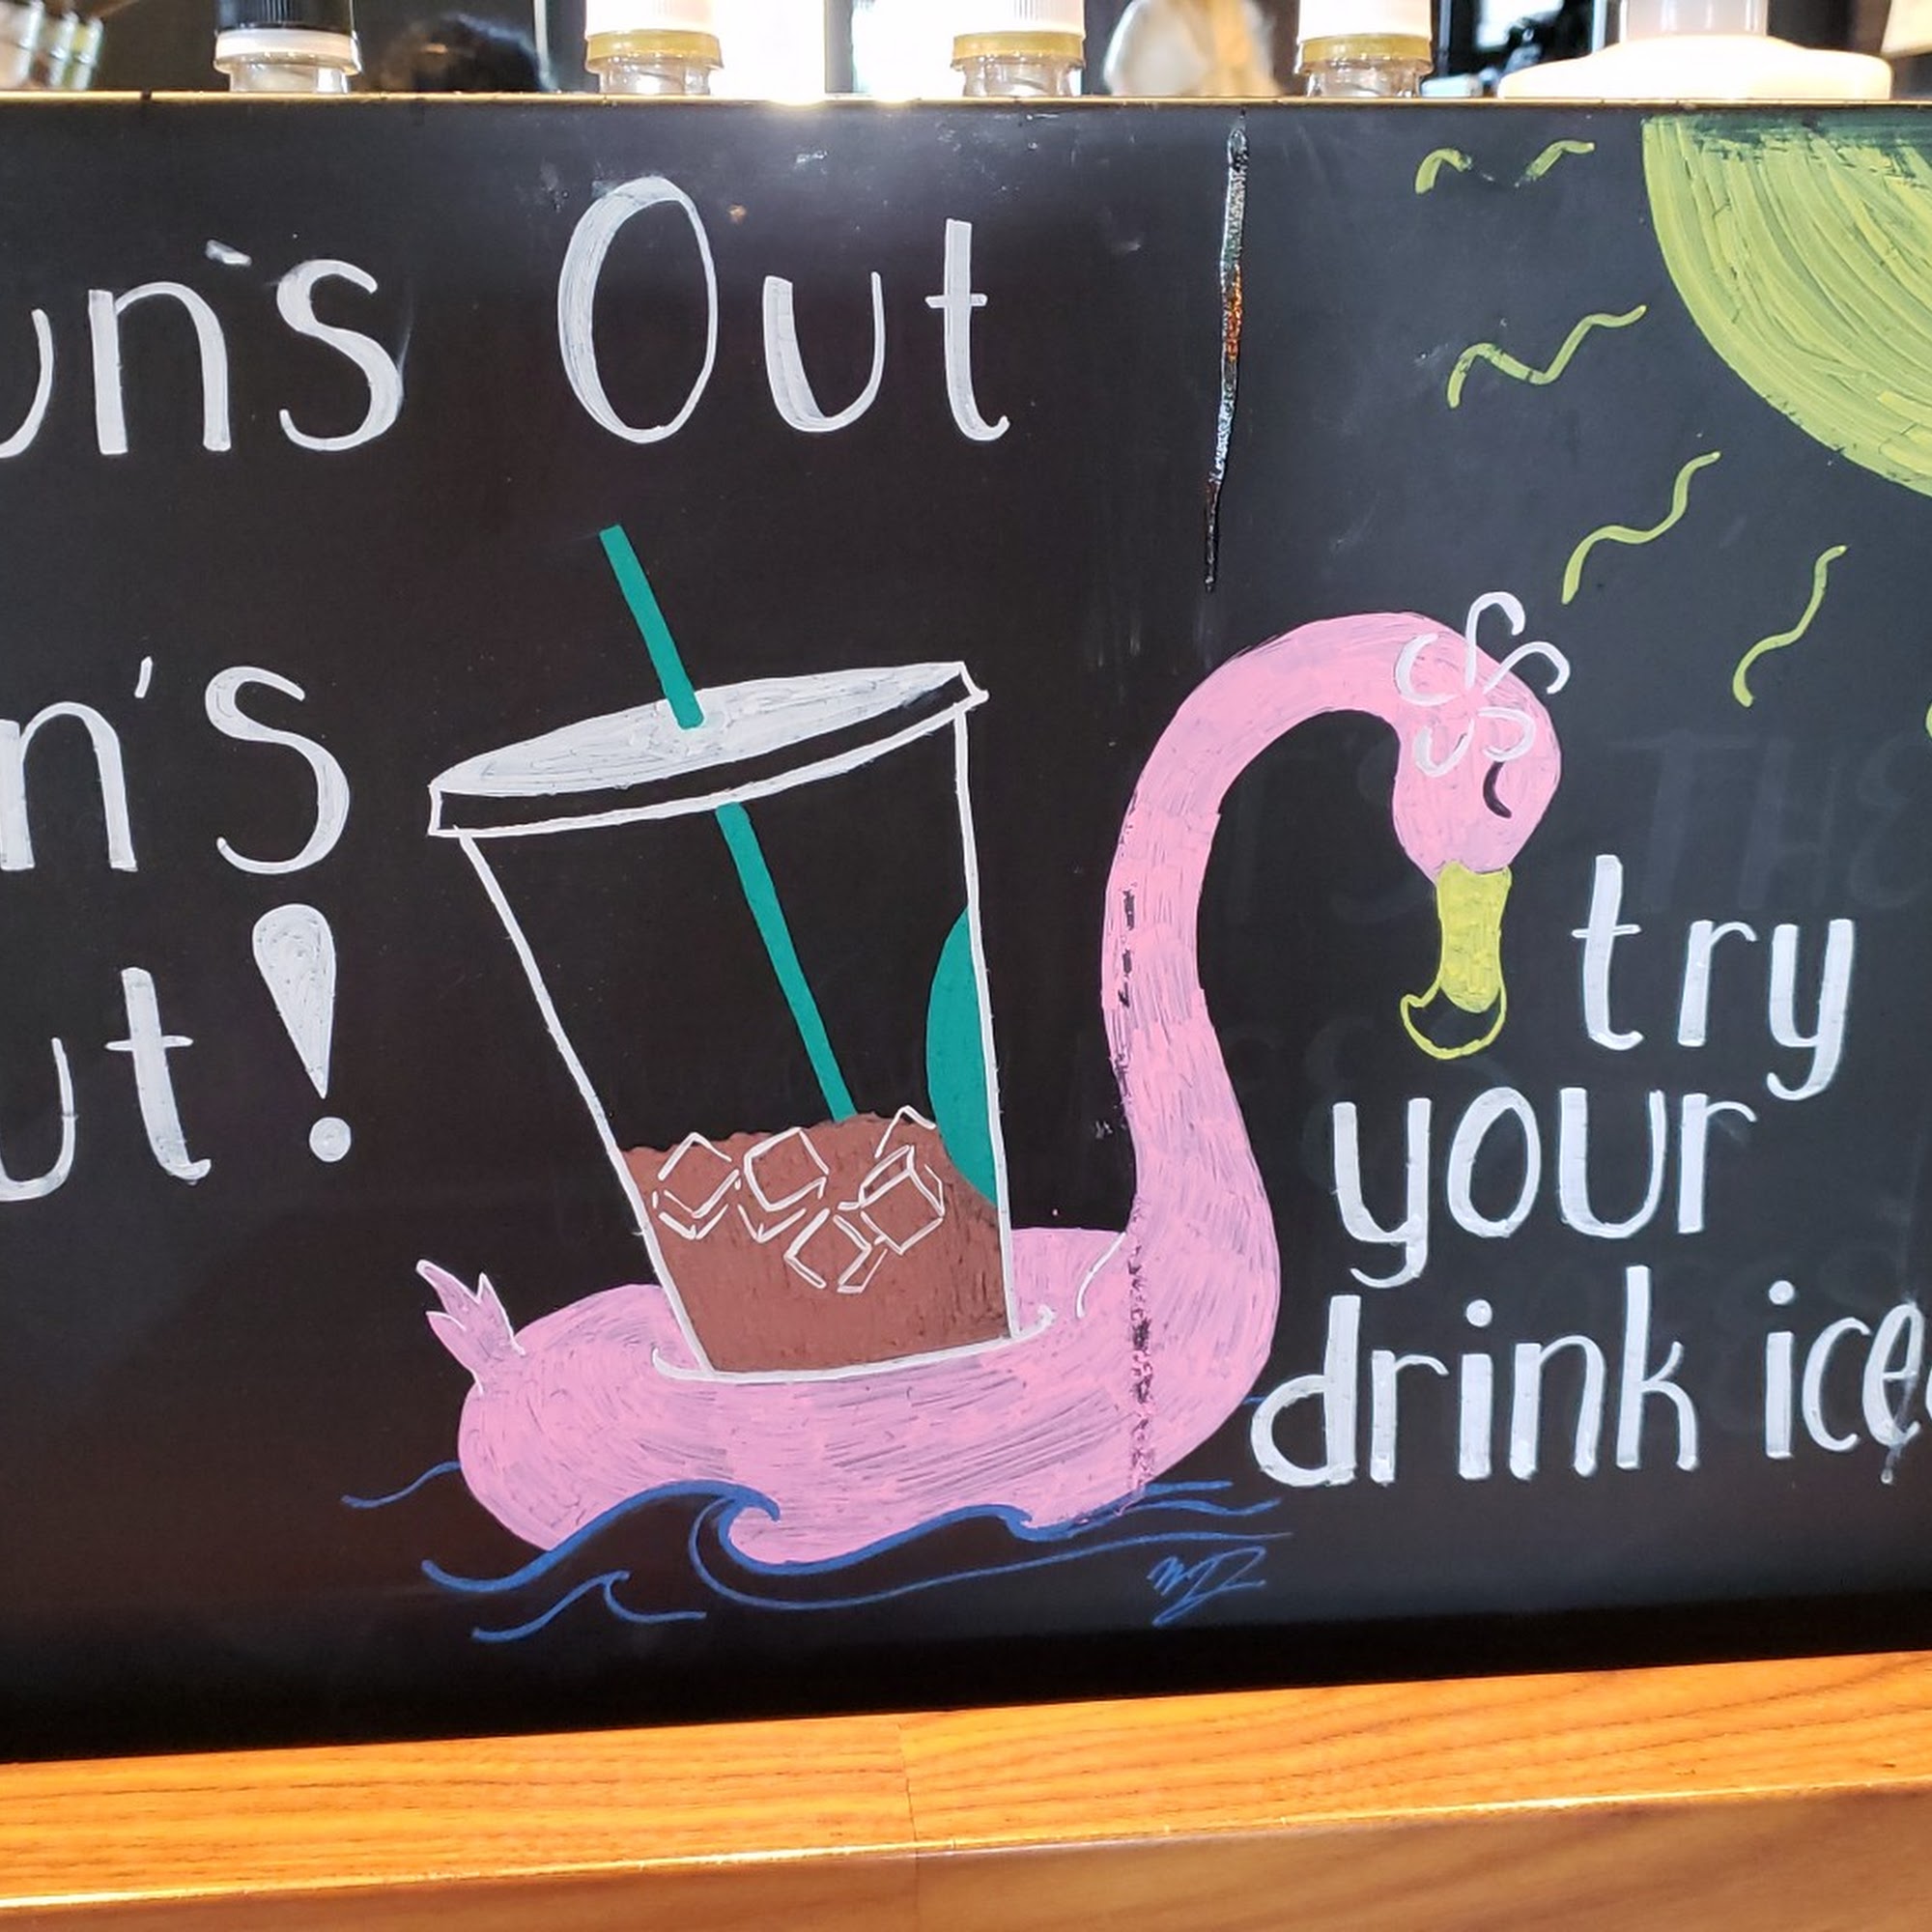 un's Out
n's
ut!
try
your
drink ice